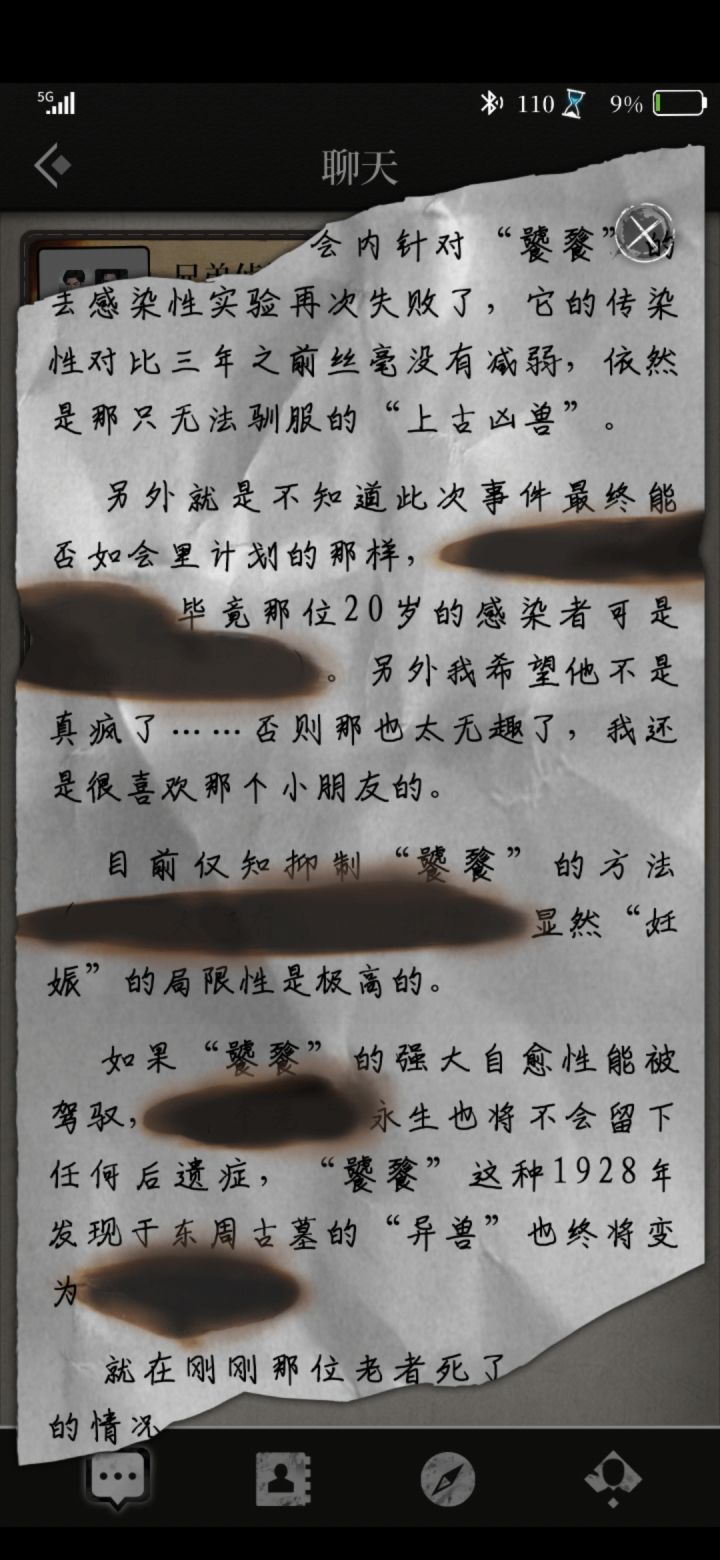 5G
110
9%
聊天
会内针对“饕餮”的
去感染性实验再次失败了，它的传染
性对比三年之前丝毫没有减弱，依然
是那只无法驯服的“上古凶兽”。
另外就是不知道此次事件最终能
否如会里计划的那样，
毕竟那位20岁的感染者可是
。另外我希望他不是
真疯了……否则那也太无趣了，我还
是很喜欢那个小朋友的。
目前仅知抑制“饕餮”的方法
显然“妊
娠”的局限性是极高的。
如果“饕餮”的强大自愈性能被
驾驭，
永生也将不会留下
任何后遗症，“饕餮”这种1928年
发现于东周古墓的“异兽”也终将变
为
就在刚刚那位老者死了
的情况